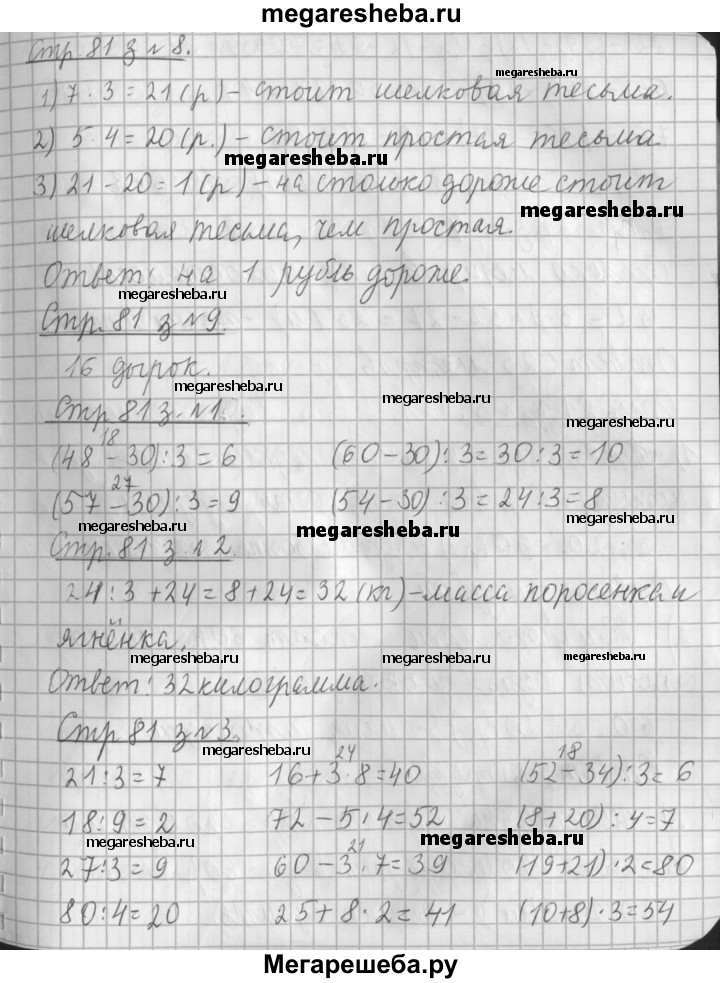 megaresheba.ru
Стр. 81 з № 8.
megaresheba.ru
1) 7 · 3 = 21 (р.) – стоит шелковая тесьма.
2) 5 · 4 = 20 (р.) – стоит простая тесьма
megaresheba.ru
3) 21 - 20 = 1 (р) – на столько дороже стоит
megaresheba.ru
шелковая тесьма, чем простая.
Ответ: на 1 рубль дороже.
megaresheba.ru
Стр. 81 з № 9.
megaresheba.ru
16 дырок.
megaresheba.ru
megaresheba.ru
Стр 81 з. № 1.
megaresheba.ru
18
(48 – 30) : 3 = 6 (60 – 30) : 3 = 30 : 3 = 10
27
(57 – 30) : 3 = 9 (54 – 30) : 3 = 24 : 3 = 8
megaresheba.ru megaresheba.ru megaresheba.ru
Стр. 81 з. № 2.
24 : 3 + 24 = 8 + 24 = 32 (кг) – масса поросенка и
ягнёнка.
megaresheba.ru megaresheba.ru megaresheba.ru
Ответ: 32 килограмма.
Стр 81 з № 3.
megaresheba.ru
24 18
21 : 3 = 7 16 + 3 · 8 = 40 (52 – 34) : 3 = 6
18 : 9 = 2 72 – 5 · 4 = 52 (8 + 20) : 4 = 7
megaresheba.ru megaresheba.ru
21
27 : 3 = 9 60 – 3 · 7 = 39 (19 + 21) · 2 = 80
80 : 4 = 20 25 + 8 · 2 = 41 (10 + 8) · 3 = 54
megaresheba.ru megaresheba.ru
Мегарешеба.ру